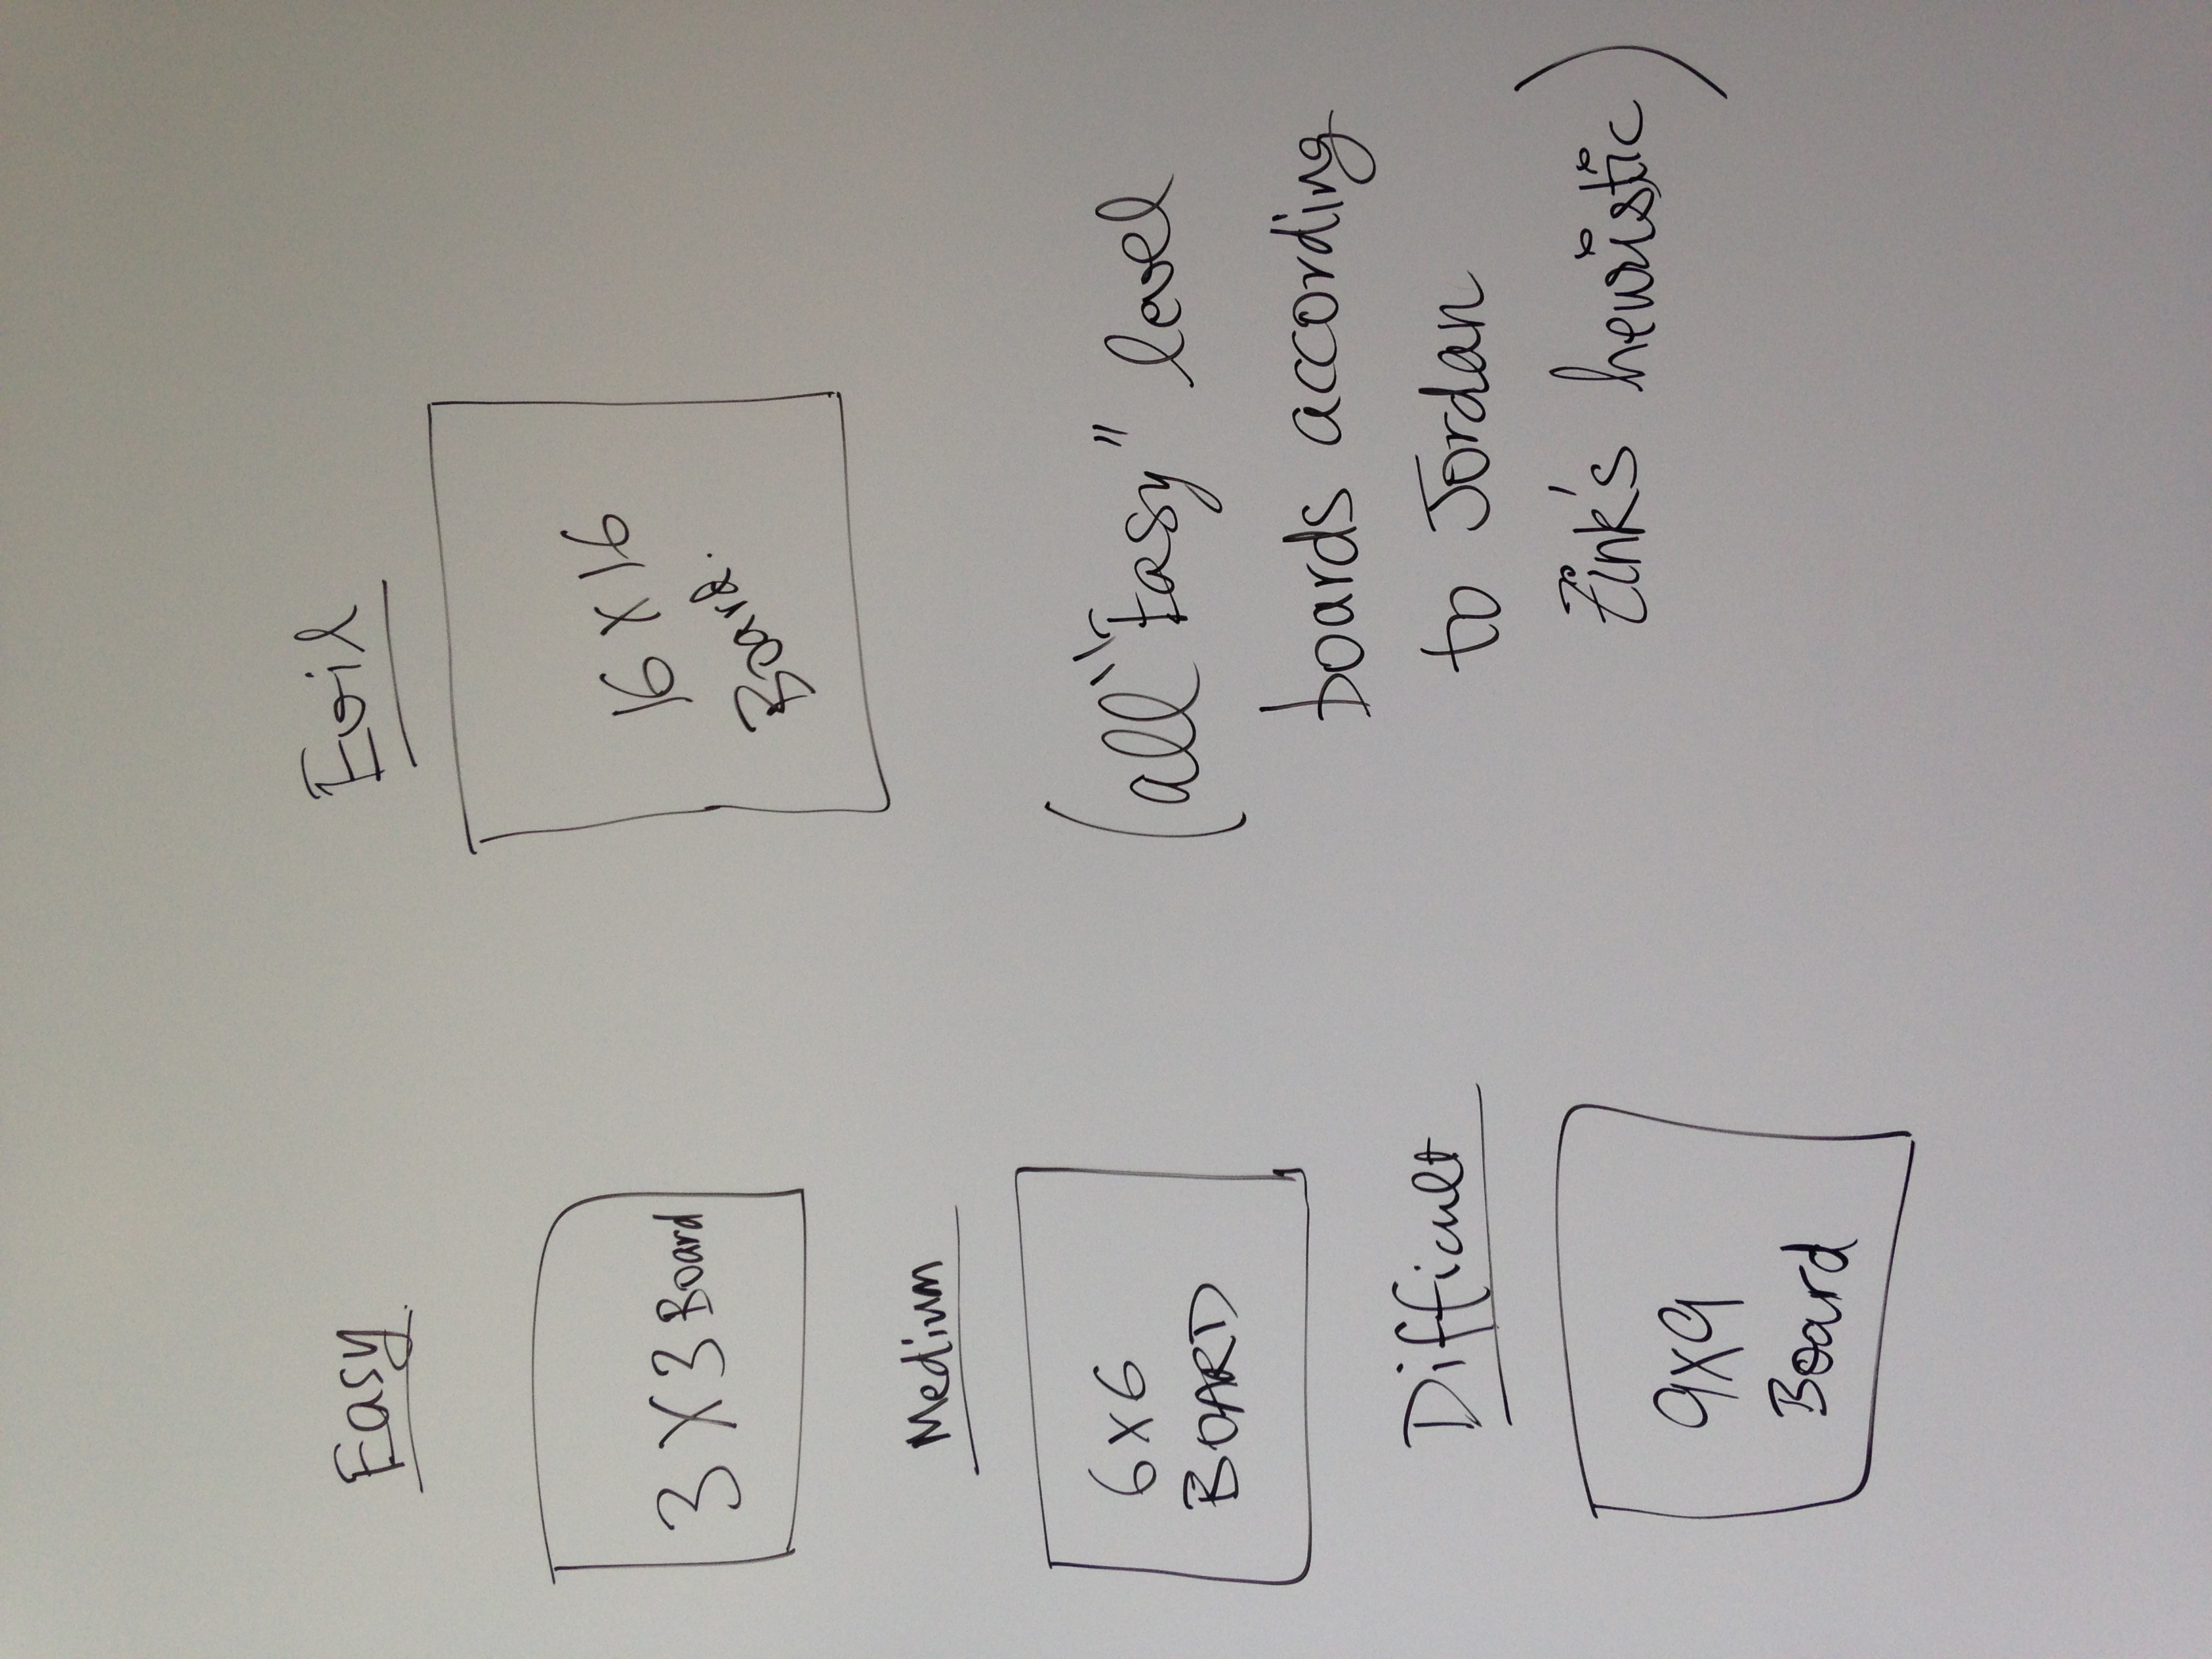 Easy
3 X 3 Board
Medium
6x6
BOARD
Difficult
9x9
Board
Evil
16 X 16
Board.
(all "Easy" level
boards according
to Jordan
Zink's heuristic)